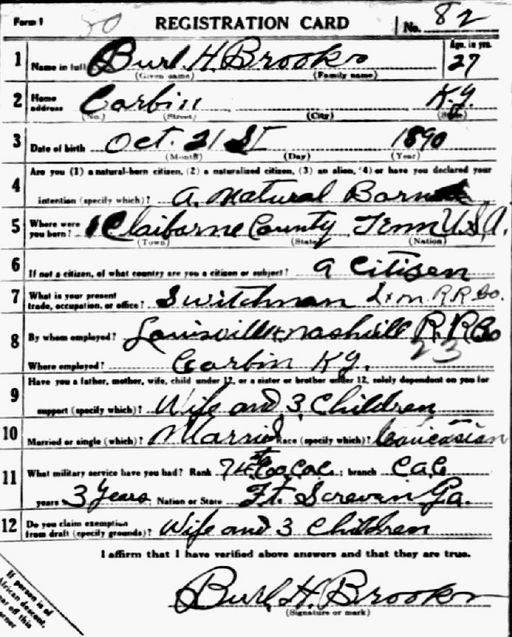 Form 1 REGISTRATION CARD No. 82
1 Name in full Burl H. Brooks Age, in yrs. 27
(Given name) (Family name)
2 Home address Corbin Ky.
(No.) (Street) (City) (State)
3 Date of birth Oct. 21 St 1890
(Month) (Day) (Year)
Are you (1) a natural-born citizen, (2) a naturalized citizen, (3) an alien, (4) or have you declared your
4 intention (specify which)? A. Natural Born
5 Where were you born? Claiborne County Tenn U.S.A.
(Town) (State) (Nation)
6 If not a citizen, of what country are you a citizen or subject? a Citisen
7 What is your present trade, occupation, or office? Switchman L & N R.R. Co.
8 By whom employed? Louisville & Nashvill R.R. Co
23
Where employed? Corbin Ky.
Have you a father, mother, wife, child under 12, or a sister or brother under 12, solely dependent on you for
9 support (specify which)? Wife and 3 Children
10 Married or single (which)? Married Race (specify which)? Caucasian
11 What military service have you had? Rank ; branch C.A.C
years 3 Years Nation or State Ft. Screven Ga.
12 Do you claim exemption from draft (specify grounds)? Wife and 3 Children
I affirm that I have verified above answers and that they are true.
Burl H. Brooks
(Signature or mark)
If person is of
African descent,
of this
corner